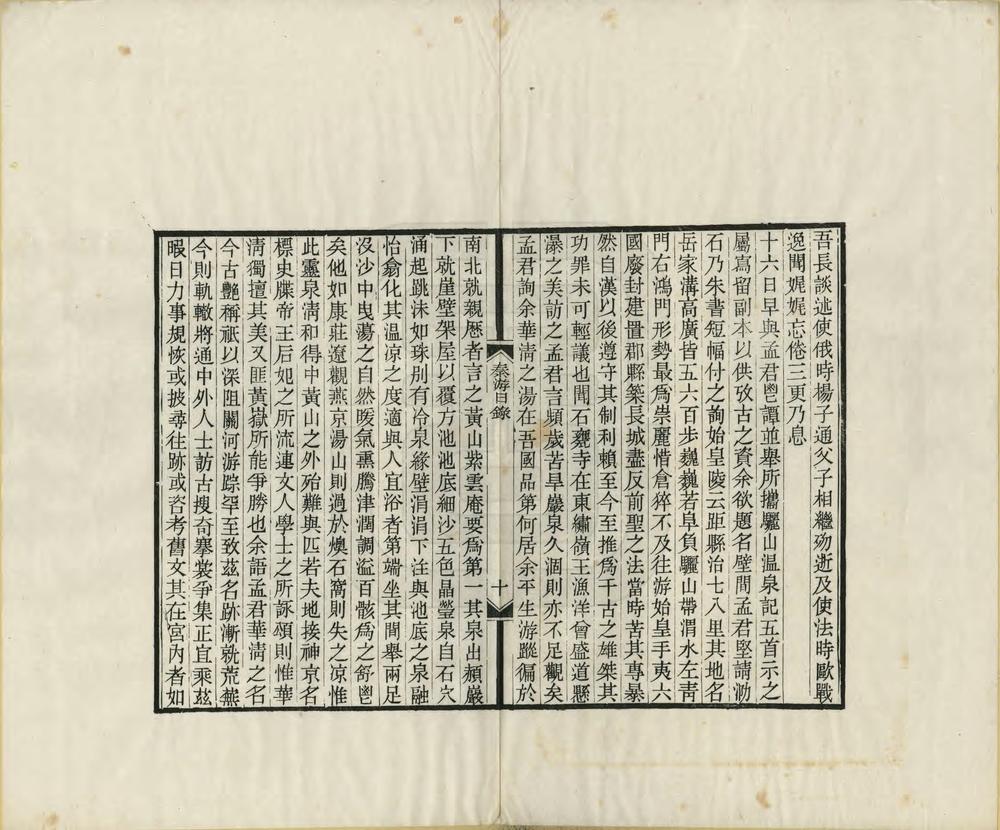 吾長談述使俄時楊子通父子相繼歿逝及使法時歐戰
逸聞娓娓忘倦三更乃息
十六日早與孟君鬯譚並舉所攜驪山温泉記五首示之
屬寫留副本以供攷古之資余欲題名壁間孟君堅請泐
石乃朱書短幅付之詢始皇陵云距縣治七八里其地名
岳家溝高廣皆五六百步巍巍若阜負驪山帶渭水左青
門右鴻門形勢最爲崇麗惜倉猝不及往游始皇手夷六
國廢封建置郡縣築長城盡反前聖之法當時苦其專暴
然自漢以後遵守其制利賴至今至推爲千古之雄桀其
功罪未可輕議也聞石甕寺在東繡嶺王漁洋曾盛道懸
瀑之美訪之孟君言頻歲苦旱巖泉久涸則亦不足觀矣
孟君詢余華清之湯在吾國品第何居余平生游蹤徧於
秦游日錄
十
南北就親歷者言之黃山紫雲庵要爲第一其泉出頳巖
下就崖壁架屋以覆方池池底細沙五色晶瑩泉自石穴
涌起跳沫如珠別有冷泉緣壁涓涓下注與池底之泉融
怡翕化其温涼之度適與人宜浴者第端坐其間舉兩足
沒沙中曳蕩之自然暖氣熏騰津潤調溢百骸爲之舒鬯
矣他如康莊遼觀燕京湯山則過於燠石窩則失之凉惟
此靈泉清和得中黃山之外殆難與匹若夫地接神京名
標史牒帝王后妃之所流連文人學士之所詠頌則惟華
清獨擅其美又匪黃嶽所能爭勝也余語孟君華清之名
今古艷稱祇以深阻關河游踪罕至致茲名跡漸就荒蕪
今則軌轍將通中外人士訪古搜奇褰裳爭集正宜乘茲
暇日力事規恢或披尋往跡或咨考舊文其在宮內者如